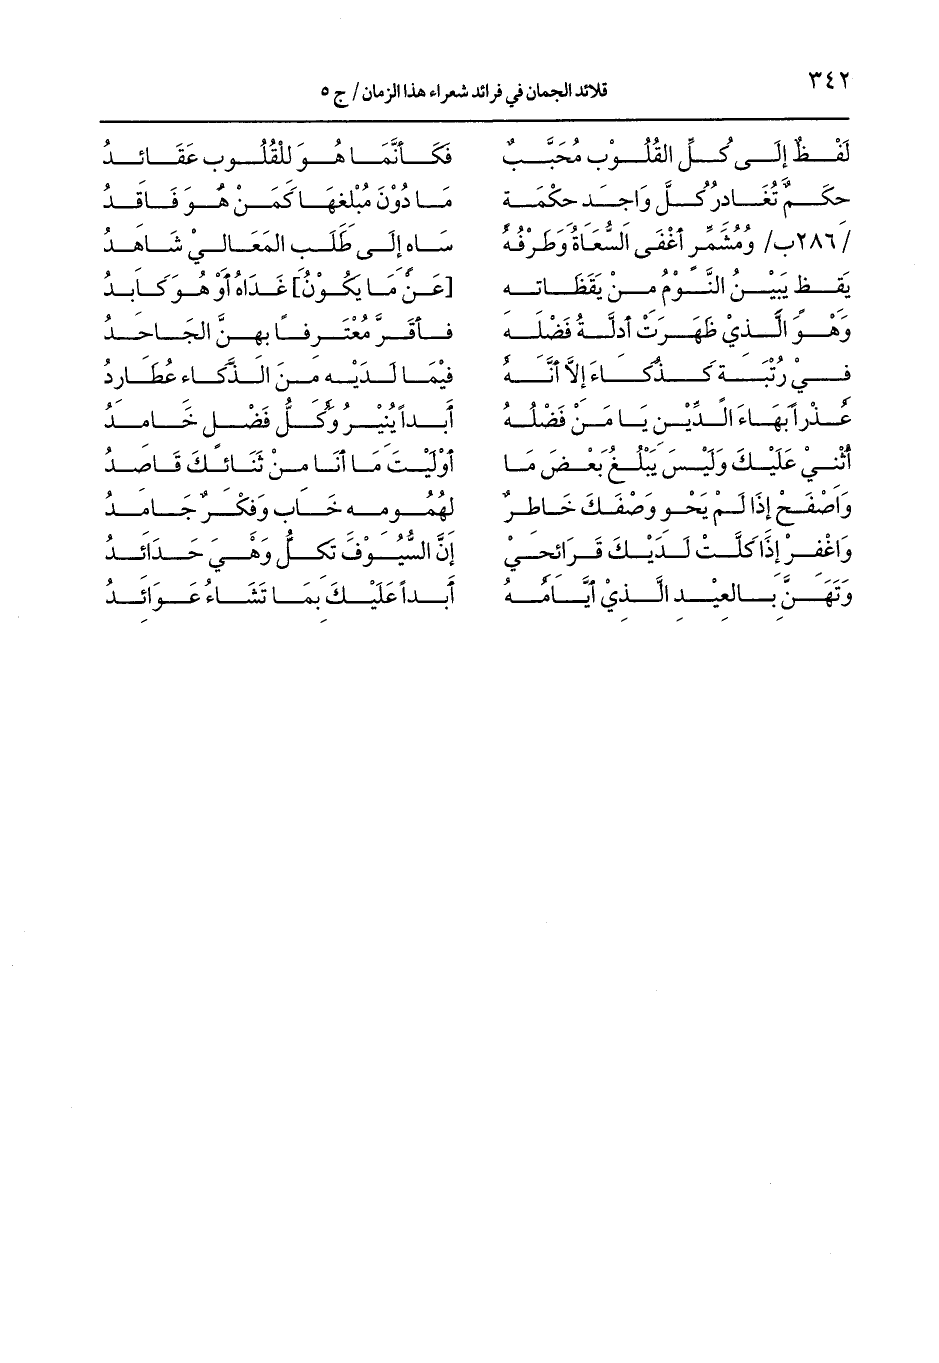 ٣٤٢
قلائد الجمان في فرائد شعراء هذا الزمان/ ج ٥
لَفْظٌ إِلَى كُلِّ القُلُوْبِ مُحَبَّبٌ فَكَأَنَّمَا هُوَ لِلْقُلُوبِ عَقَائِدُ
حِكَمٌ تُغَادِرُ كُلَّ وَاجِدِ حِكْمَةٍ مَا دُوْنَ مُبْلِغِهَا كَمَنْ هُوَ فَاقِدُ
/٢٨٦ب/ وَمُشَمِّرٍ أَغْفَى السُّعَاةُ وَطَرْفُهُ سَاهٍ إِلَى طَلَبِ المَعَالِيْ شَاهِدُ
يَقِظٍ يَبَيْنُ النَّوْمُ مِنْ يَقَظَاتِهِ [عَنْ مَا يَكُوْنُ] غَدَاهُ أَوْ هُوَ كَابِدُ
وَهْوَ الَّذِيْ ظَهَرَتْ أَدِلَّةُ فَضْلِهِ فَأَقَرَّ مُعْتَرِفاً بِهِنَّ الجَاحِدُ
فِيْ رُتْبَةٍ كَذُكَاءَ إِلاَّ أَنَّهُ فِيْمَا لَدَيْهِ مِنَ الذَّكَاءِ عُطَارِدُ
عُذْراً بَهَاءَ الدِّيْنِ يَا مَنْ فَضْلُهُ أَبَداً يُنِيْرُ وَكُلُّ فَضْلٍ خَامِدُ
أُثْنِيْ عَلَيْكَ وَلَيْسَ يَبْلُغُ بَعْضَ مَا أَوْلَيْتَ مَا أَنَا مِنْ ثَنَائِكَ قَاصِدُ
وَاصْفَحْ إِذَا لَمْ يَحْوِ وَصْفَكَ خَاطِرٌ لِهُمُومِهِ خَابٍ وَفِكْرٌ جَامِدُ
وَاغْفِرْ إِذَا كَلَّتْ لَدَيْكَ قَرَائِحِيْ إِنَّ السُّيُوْفَ تَكِلُّ وَهْيَ حَدَائِدُ
وَتَهَنَّ بِالعِيْدِ الَّذِيْ أَيَّامُهُ أَبَداً عَلَيْكَ بِمَا تَشَاءُ عَوَائِدُ